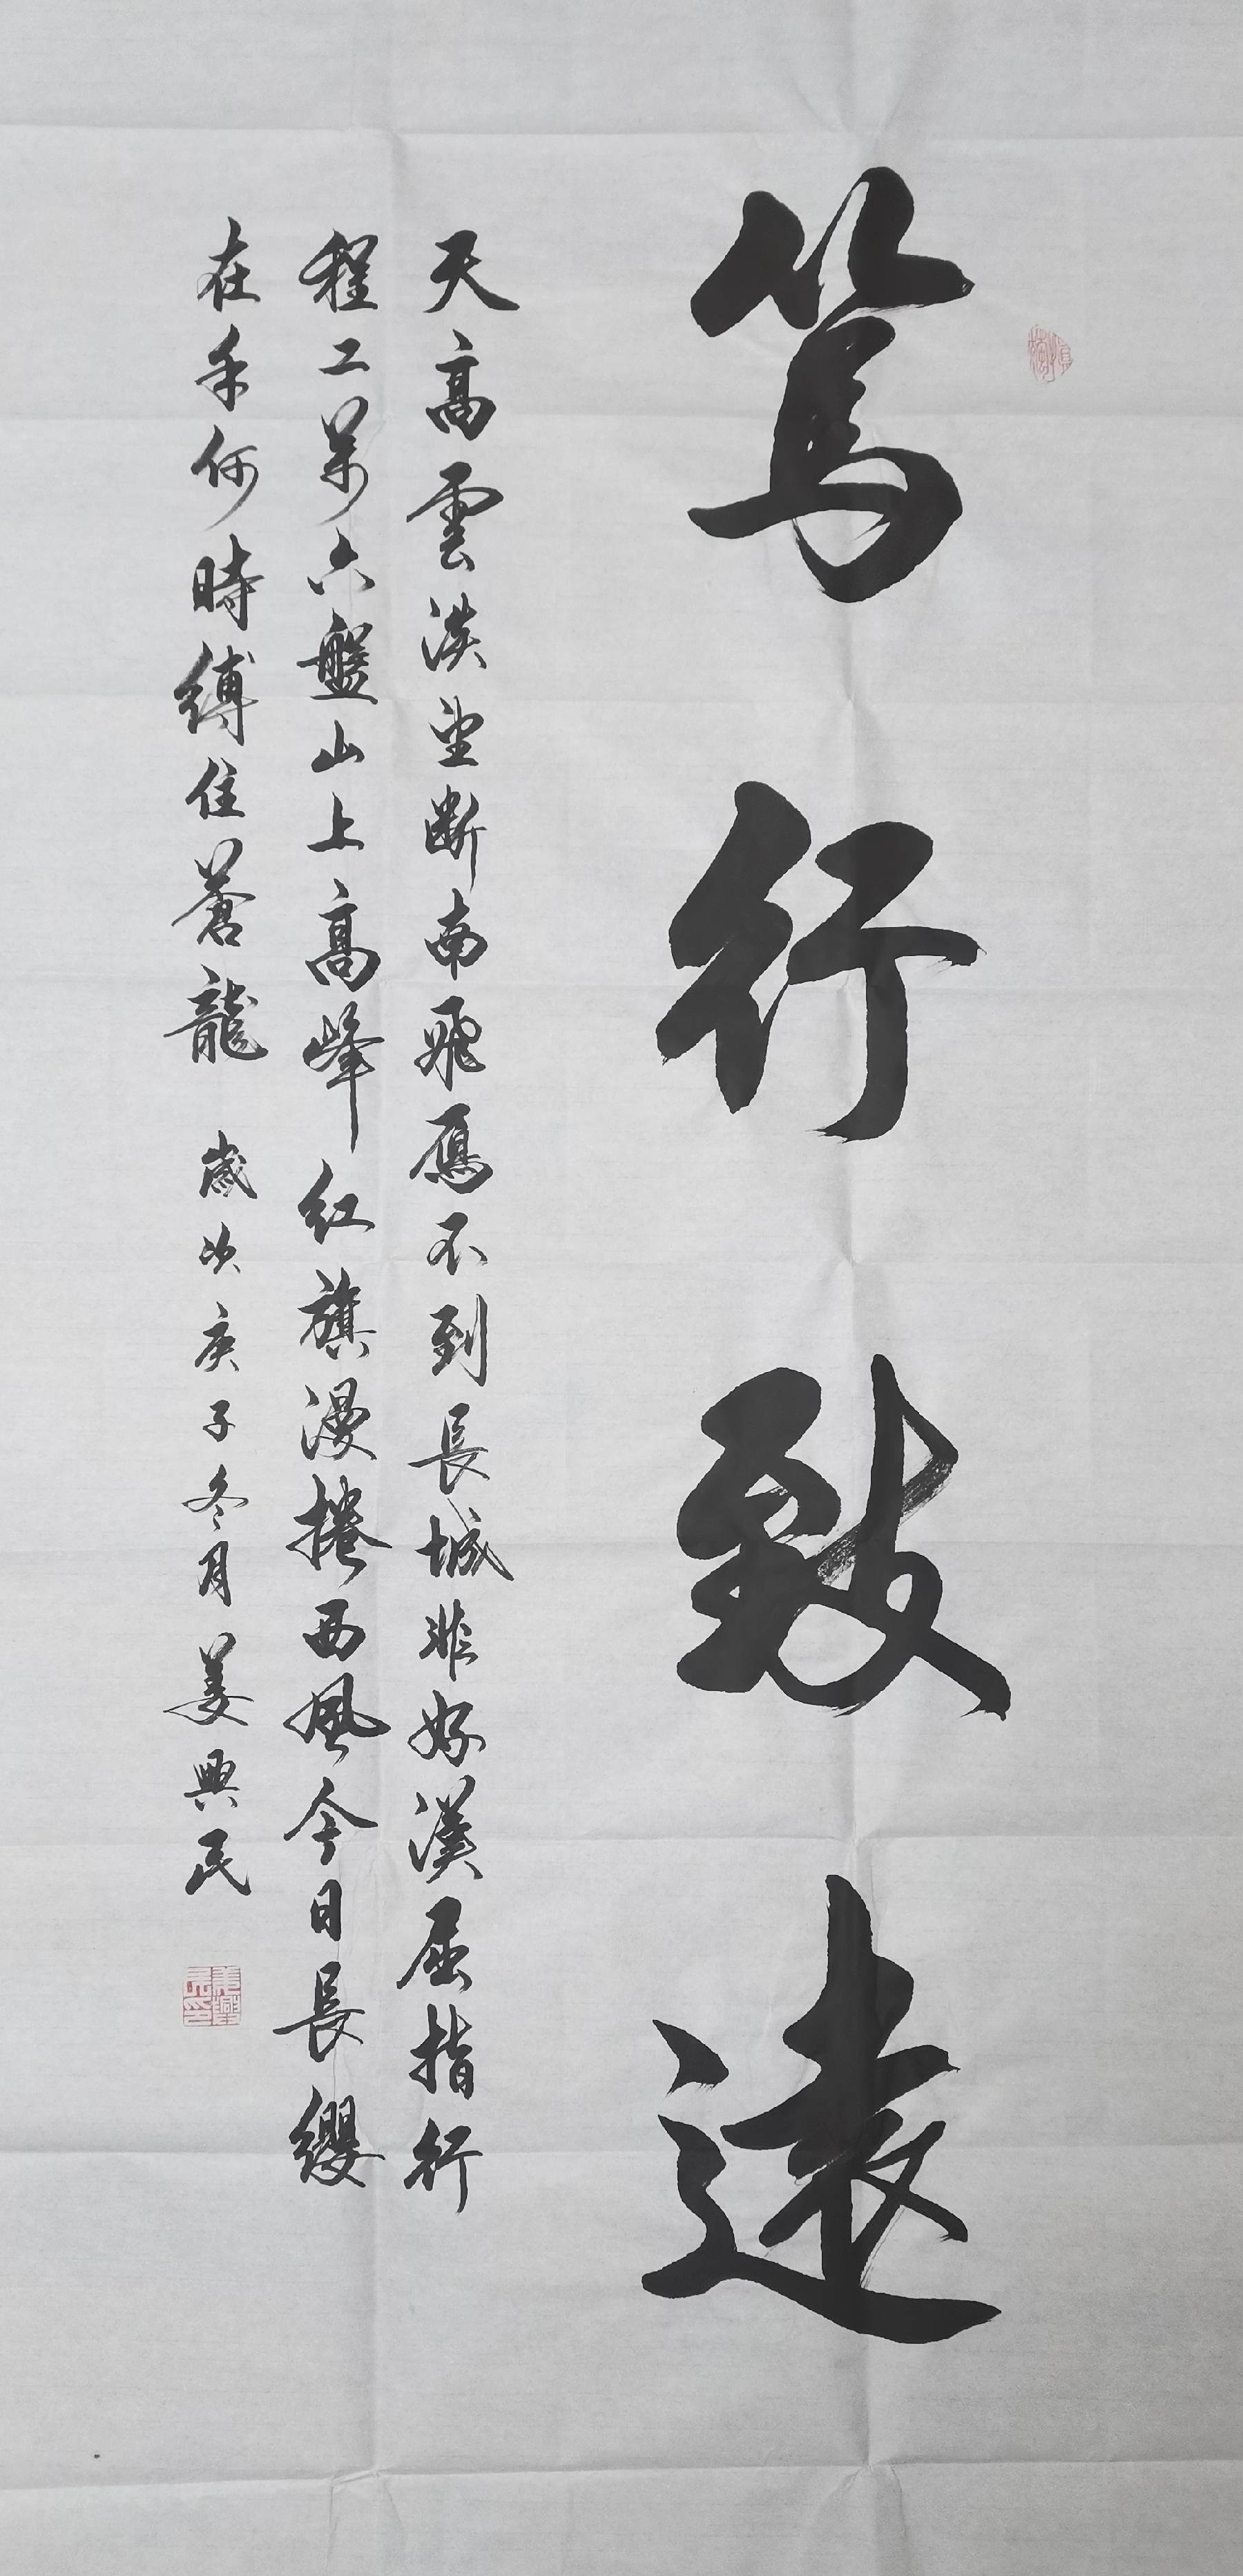 篤行致遠
天高雲淡望斷南飛雁不到長城非好漢屈指行
程二萬六盤山上高峰紅旗漫捲西風今日長纓
在手何時縛住蒼龍 歲次庚子冬月姜興民
姜興民印